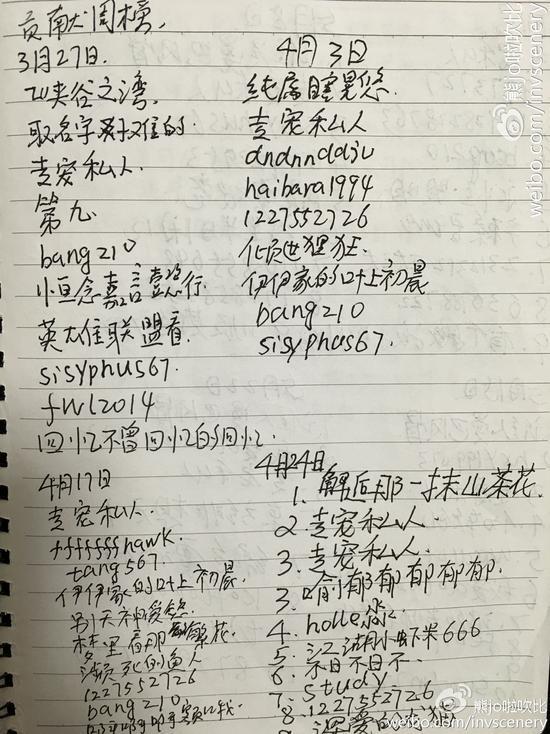 贡献周榜
3月27日.
W峡谷之湾.
取名字好难的
专宠私人.
第九.
bang210
恒念嘉言懿行.
英大住联盟看.
sisyphus67.
fwl2014
回忆不曾回忆的回忆.
4月3日
纯属瞎晃悠.
专宠私人
dndnnddju
haibara1994
1227552726
倾世狂.
伊伊家的叶上初晨
bang210
sisyphus67.
4月17日
专宠私人.
fffffffhawk.
tang567.
伊伊家的叶上初晨.
别天神
林里看那繁花.
濒死的鱼人
1227552726
bang210
4月24日
1. 邂逅那一抹山茶花.
2 专宠私人.
3. 专宠私人.
3. 俞郁郁郁郁郁.
4. holle淼.
5. 江湖小虾米666
6. 不日不.
7. study
8. 1227552726
深爱的
熊jo啦吹比
weibo.com/invscenery
熊jo啦吹比
weibo.com/invscenery